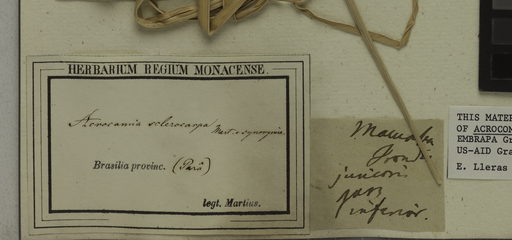 HERBARIUM REGIUM MONACENSE.
Acrocomia sclerocarpa Mart. c. synonymis.
Brasilia provinc. (Pará)
legt. Martius.
Frondis
junioris
pars
inferior.
THIS MATER
OF ACROCOM
EMBRAPA Gr
US-AID Gra
E. Lleras